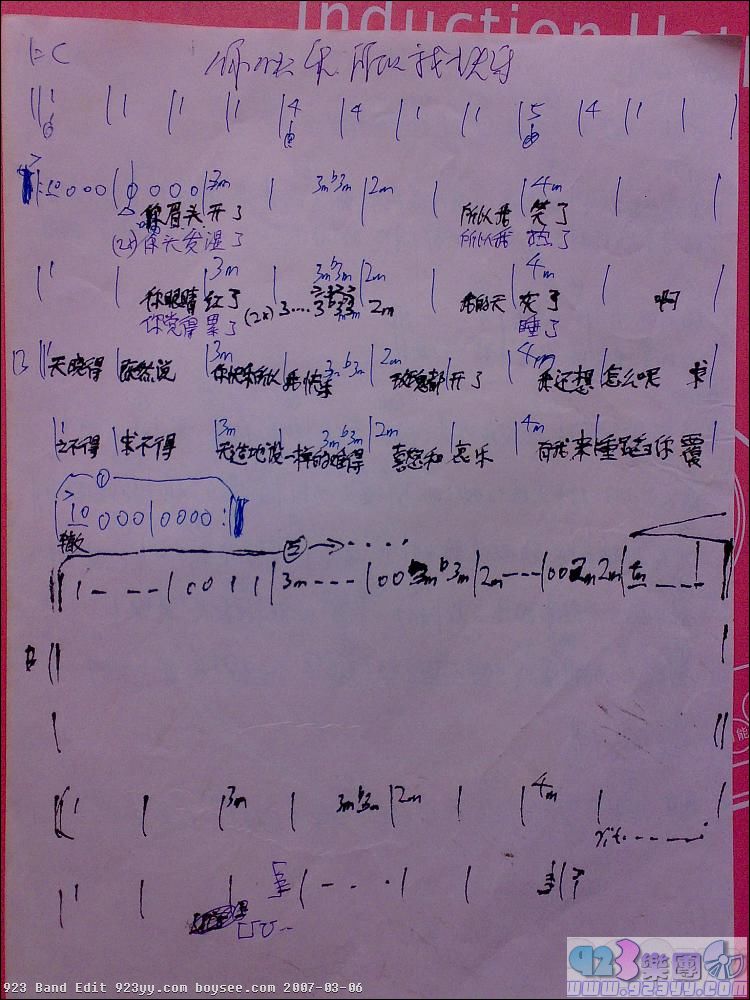 Induction Hot
1=C 你快乐所以我快乐
1 1 1 1 4 4 1 1 5 4 1
0 0 0 0 0 0 3m 3m b3m 2m 4m
你眉头开了 所以我 笑了
(2x) 你头发湿了 所以我 热了
1 3m 3m b3m 2m 4m
你眼睛 红了 (2x) 3.... 2m 我的天 灰了 啊
你觉得 累了 睡了
B 天晓得 既然说 3m 你快乐所以 我快乐 3m b3m 2m 玫瑰都 开了 4m 我还想 怎么呢 求
1 之不得 求不得 3m 天造地设 一样的难得 3m b3m 2m 喜怒和 哀乐 4m 有我来 重蹈你 覆
①
10 0 0 0 | 0 0 0 0 :
辙
② → ....
1 - - - | 0 0 1 1 | 3m - - - | 0 0 3m b3m | 2m - - - | 0 0 2m 2m
B
1 3m 3m b3m 2m 4m
rit.
1
923 Band Edit 923yy.com boysee.com 2007-03-06
923樂團
www.923yy.com
能